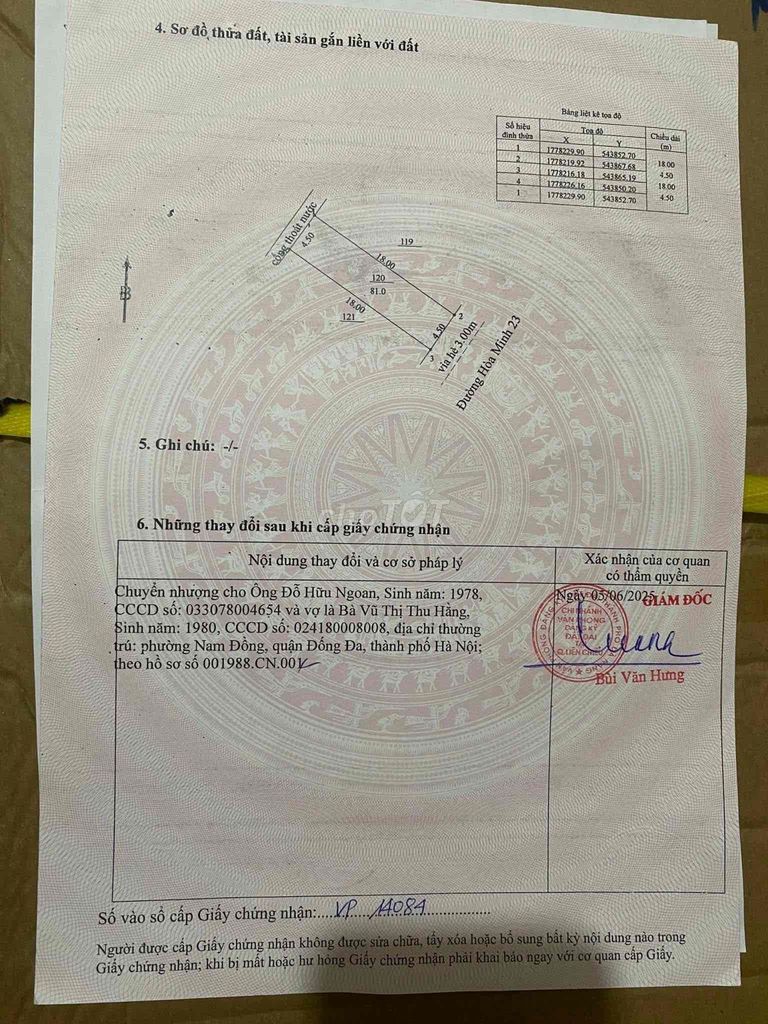 4. Sơ đồ thửa đất, tài sản gắn liền với đất
Bảng liệt kê tọa độ
Số hiệu đỉnh thửa Tọa độ Chiều dài (m)
X Y
1 1778229.90 543852.70
18.00
2 1778219.92 543867.68
4.50
3 1778216.18 543865.19
18.00
4 1778226.16 543850.20
4.50
1 1778229.90 543852.70
cống thoát nước
4.50
119
18.00
120
81.0
18.00
121
4.50
2
3
vỉa hè 3.00m
Đường Hòa Minh 23
B
5. Ghi chú: -/-
chợTỐT
6. Những thay đổi sau khi cấp giấy chứng nhận
Nội dung thay đổi và cơ sở pháp lý
Xác nhận của cơ quan
có thẩm quyền
Chuyển nhượng cho Ông Đỗ Hữu Ngoan, Sinh năm: 1978,
CCCD số: 033078004654 và vợ là Bà Vũ Thị Thu Hằng,
Sinh năm: 1980, CCCD số: 024180008008, địa chỉ thường
trú: phường Nam Đồng, quận Đống Đa, thành phố Hà Nội;
theo hồ sơ số 001988.CN.00
Ngày 05/06/2025
GIÁM ĐỐC
CHI NHÁNH
VĂN PHÒNG
ĐĂNG KÝ
ĐẤT ĐAI
Q.LIÊN CHIỂU
Bùi Văn Hưng
Số vào sổ cấp Giấy chứng nhận:....VP....14084..................
Người được cấp Giấy chứng nhận không được sửa chữa, tẩy xóa hoặc bổ sung bất kỳ nội dung nào trong
Giấy chứng nhận; khi bị mất hoặc hư hỏng Giấy chứng nhận phải khai báo ngay với cơ quan cấp Giấy.